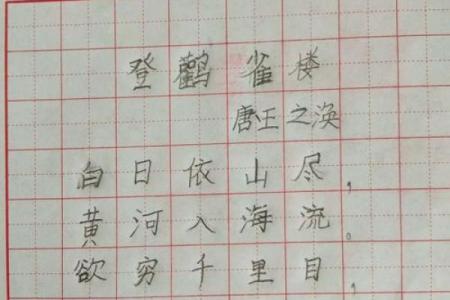 登鹳雀楼
唐王之涣
白日依山尽，
黄河入海流。
欲穷千里目，